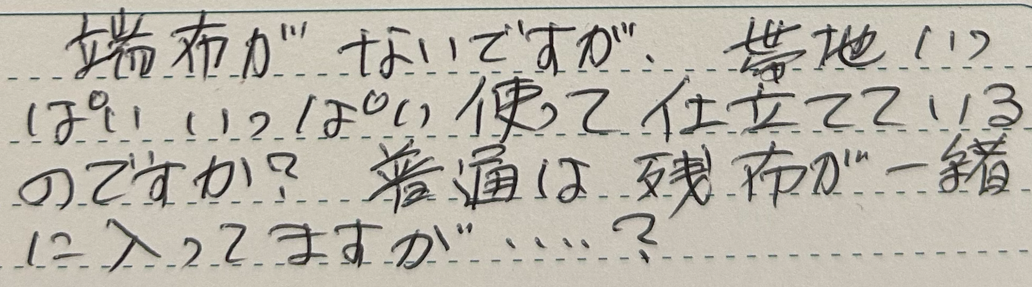 端布が ないですが、 帯地いっ
ぱい いっぱい 使って 仕立てている
のですか? 普通は 残布が一緒
に入ってますが‥‥?